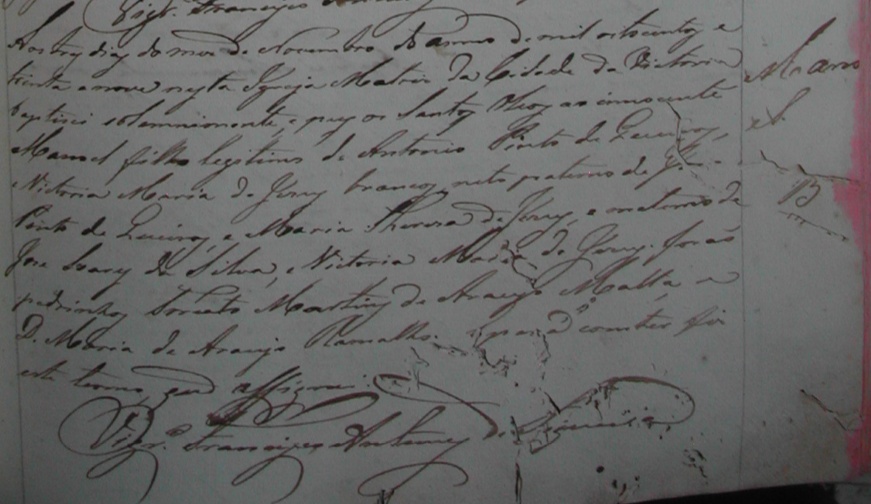 Vigr.º Francisco
Aos tres dias do mes de Novembro do anno de mil oitocentos e
trinta e nove nesta Igreja Matriz da Cidade da Victoria
baptisei solemnemente, e puz os Santos Oleos ao innocente
Manoel filho legitimo de Antonio Pinto de Queiroz, e
Victoria Maria de Jesus brancos, neto paterno de
Pinto de Queiroz, e Maria Theresa de Jesus, e materno de
Jose da Silva, e Victoria Maria de Jesus. Forão
padrinhos Torcato Martins de Araujo Malta, e
D. Maria de Araujo Ramalho. E para constar fiz
este termo, que assignei.
Vigr.º Francisco Antunes de Siqueira
Mano
el
B